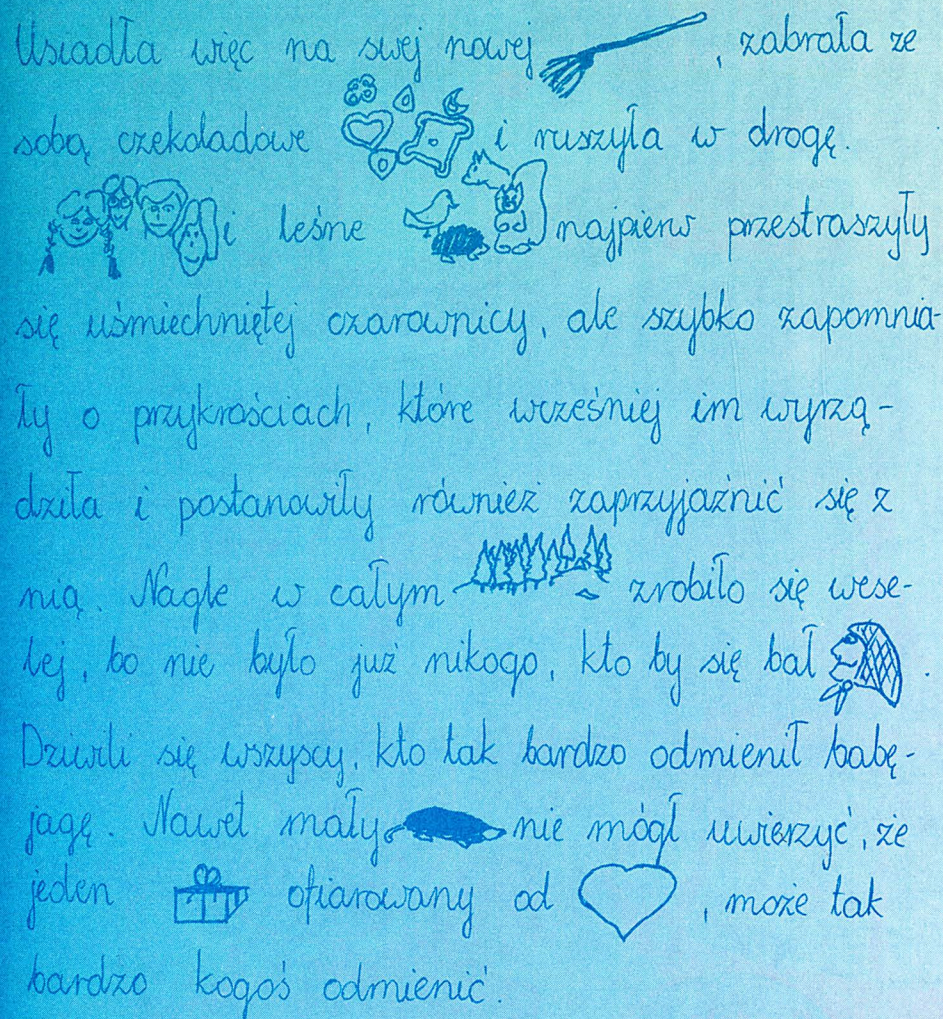 Usiadła więc na swej nowej , zabrała ze
sobą czekoladowe i ruszyła w drogę.
i leśne najpierw przestraszyły
się uśmiechniętej czarownicy, ale szybko zapomnia-
ły o przykrościach, które wcześniej im wyrzą-
dziła i postanowiły również zaprzyjaźnić się z
nią. Nagle w całym zrobiło się wese-
lej, bo nie było już nikogo, kto by się bał .
Dziwili się wszyscy, kto tak bardzo odmienił babę-
jagę. Nawet mały nie mógł uwierzyć, że
jeden ofiarowany od , może tak
bardzo kogoś odmienić.